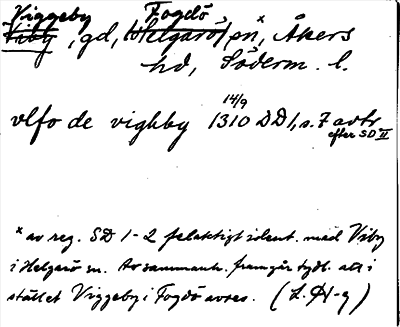 Viggeby Fogdö
Viby, gd, (Helgarö) sn,ˣ Åkers
hd, Söderm. l.
14/9
vlfo de vighby 1310 DD 1, s. 7 avtr
efter SD II
ˣ av reg. SD 1-2 felaktigt ident. med Viby
i Helgarö sn. Av sammanh. framgår tydl. att i
stället Viggeby i Fogdö avses. (L. H-g)